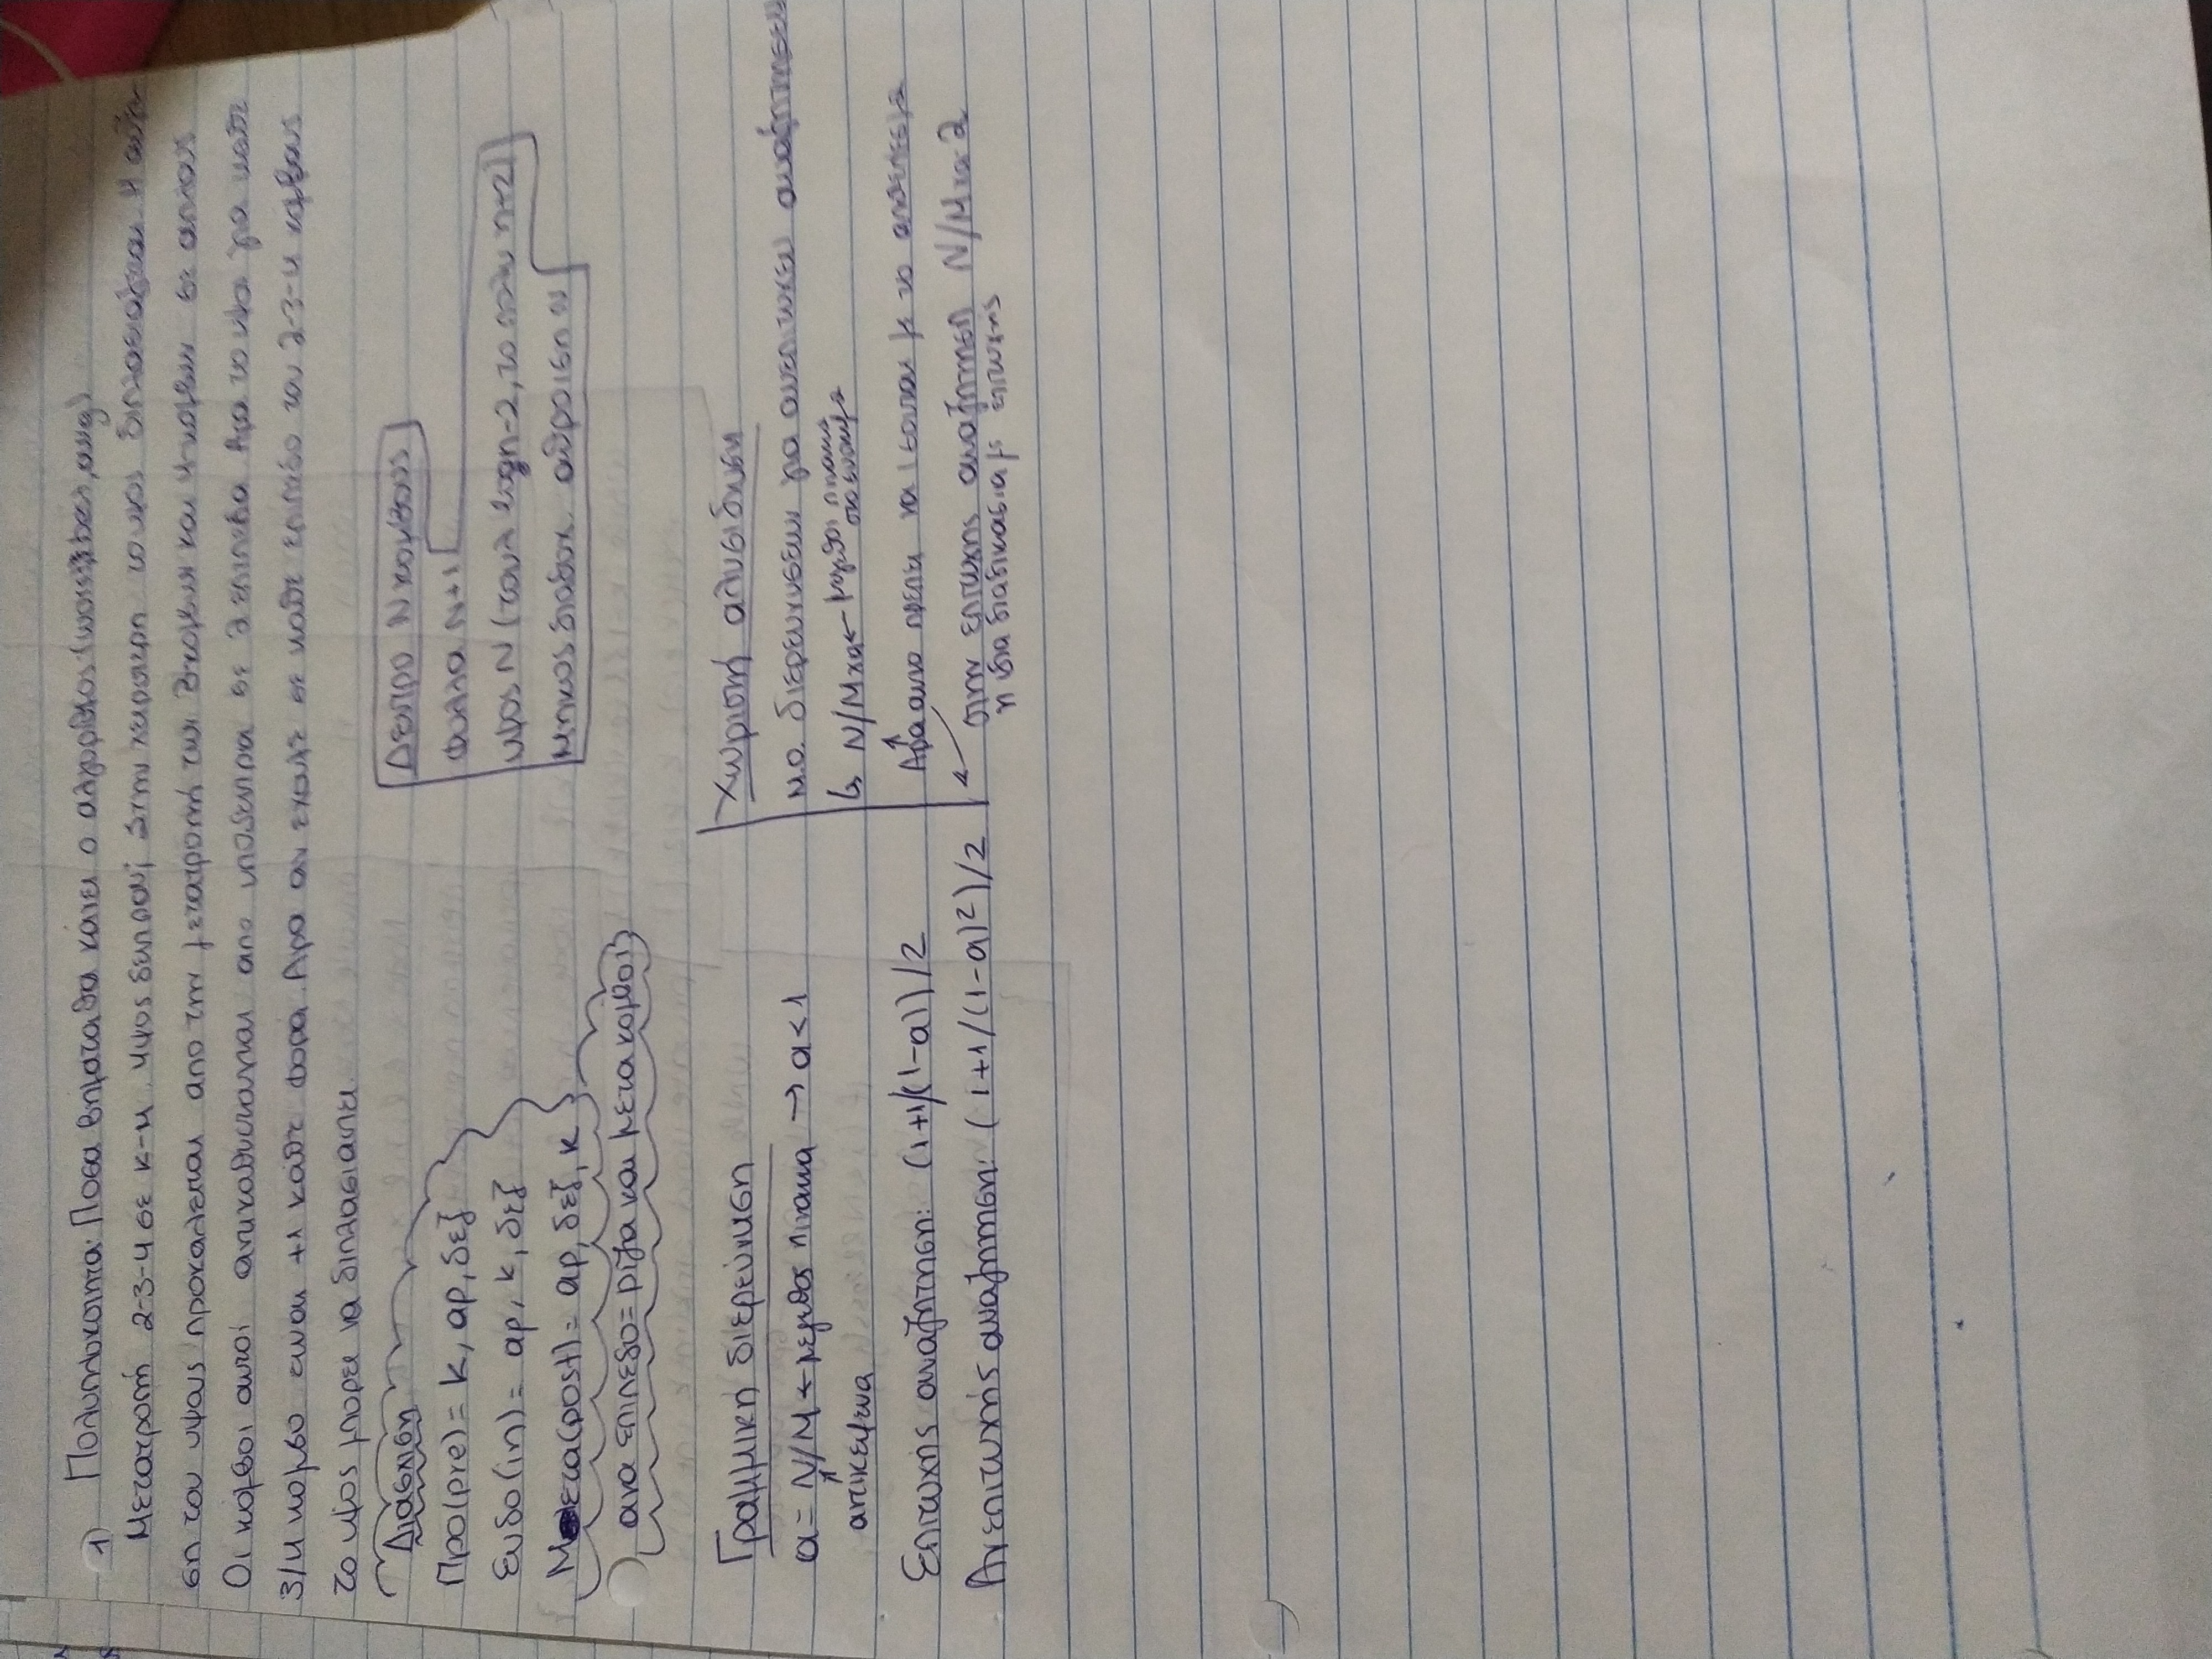 1) Πολυπλοκοτητα: Ποσα βηματα θα κανει ο αλγοριθμος (worst, best, avg)
Μετατροπή 2-3-4 σε κ-μ. Υψος δεντρου; Στην χειροτερη το υψος διπλασιαζεται. Η αυξη-
ση του υψους προκαλειται απο την μετατροπή των 3-κομβων και 4-κομβων σε απλους
Οι κόμβοι αυτοί αντικαθιστανται απο υποδεντρα σε 2 επιπεδα. Αρα το υψος για καθε
3/4 κομβο ειναι +1 κάθε φορά. Αρα αν εχουμε σε καθε επιπεδο του 2-3-4 κομβους
το υψος μπορει να διπλασιαστει.
Διάσχιση
Προ(pre) = κ, αρ, δεξ
Ενδο(in) = αρ, κ, δεξ
Μετα(post) = αρ, δεξ, κ
ανα επιπεδο = ριζα και μετα κομβοι
Δεντρο Ν κομβους
Φυλλα Ν+1
υψος Ν (τουλ -2, το πολυ n+2)
Μηκος διαδοχ. αθροιση
Γραμμική διερεύνιση
α = Ν/Μ ← μεγεθος πινακα → α < 1
↑
αντικειμενα
Επιτυχής αναζητηση: (1+1/(1-α))/2
Ανεπιτυχής αναζητηση: (1+1/(1-α)²)/2
Χωριστή αλυσιδωση
μ.ο. διερευνησεων για ανεπιτυχεις αναζητησεις
↳ Ν/Μ ← μεγεθος πινακα
Αρα αυτο πρεπει να ισουται με το αποτελεσμα
στην επιτυχης αναζητηση Ν/Μ 2
η ιδια διαδικασια με επιτυχης